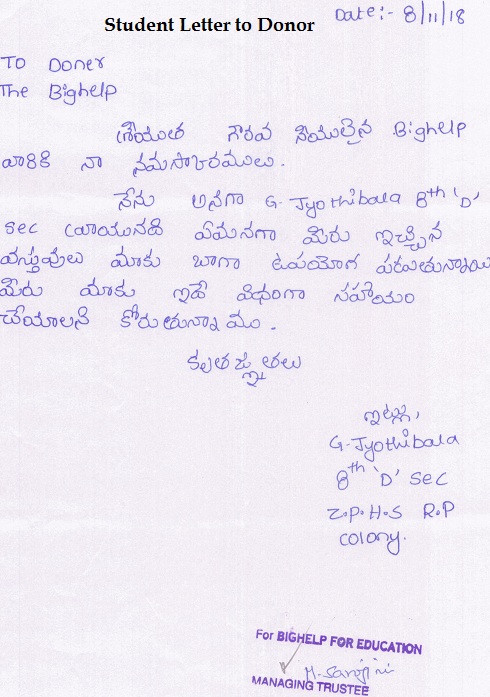 Student Letter to Donor
Date:- 8/11/18
To Doner
The Bighelp
శ్రీయుత గౌరవ నీయులైన Bighelp
వారికి నా నమస్కారములు.
నేను అనగా G. Jyothibala 8th 'D'
sec వ్రాయునది ఏమనగా మీరు ఇచ్చిన
వస్తువులు మాకు బాగా ఉపయోగ పడుతున్నాయి
మీరు మాకు ఇదే విధంగా సహాయం
చేయాలని కోరుతున్నాము.
కృతజ్ఞతలు
ఇట్లు,
G. Jyothibala
8th 'D' sec
Z.P.H.S R.P
colony.
For BIGHELP FOR EDUCATION
M. Sarojini
MANAGING TRUSTEE